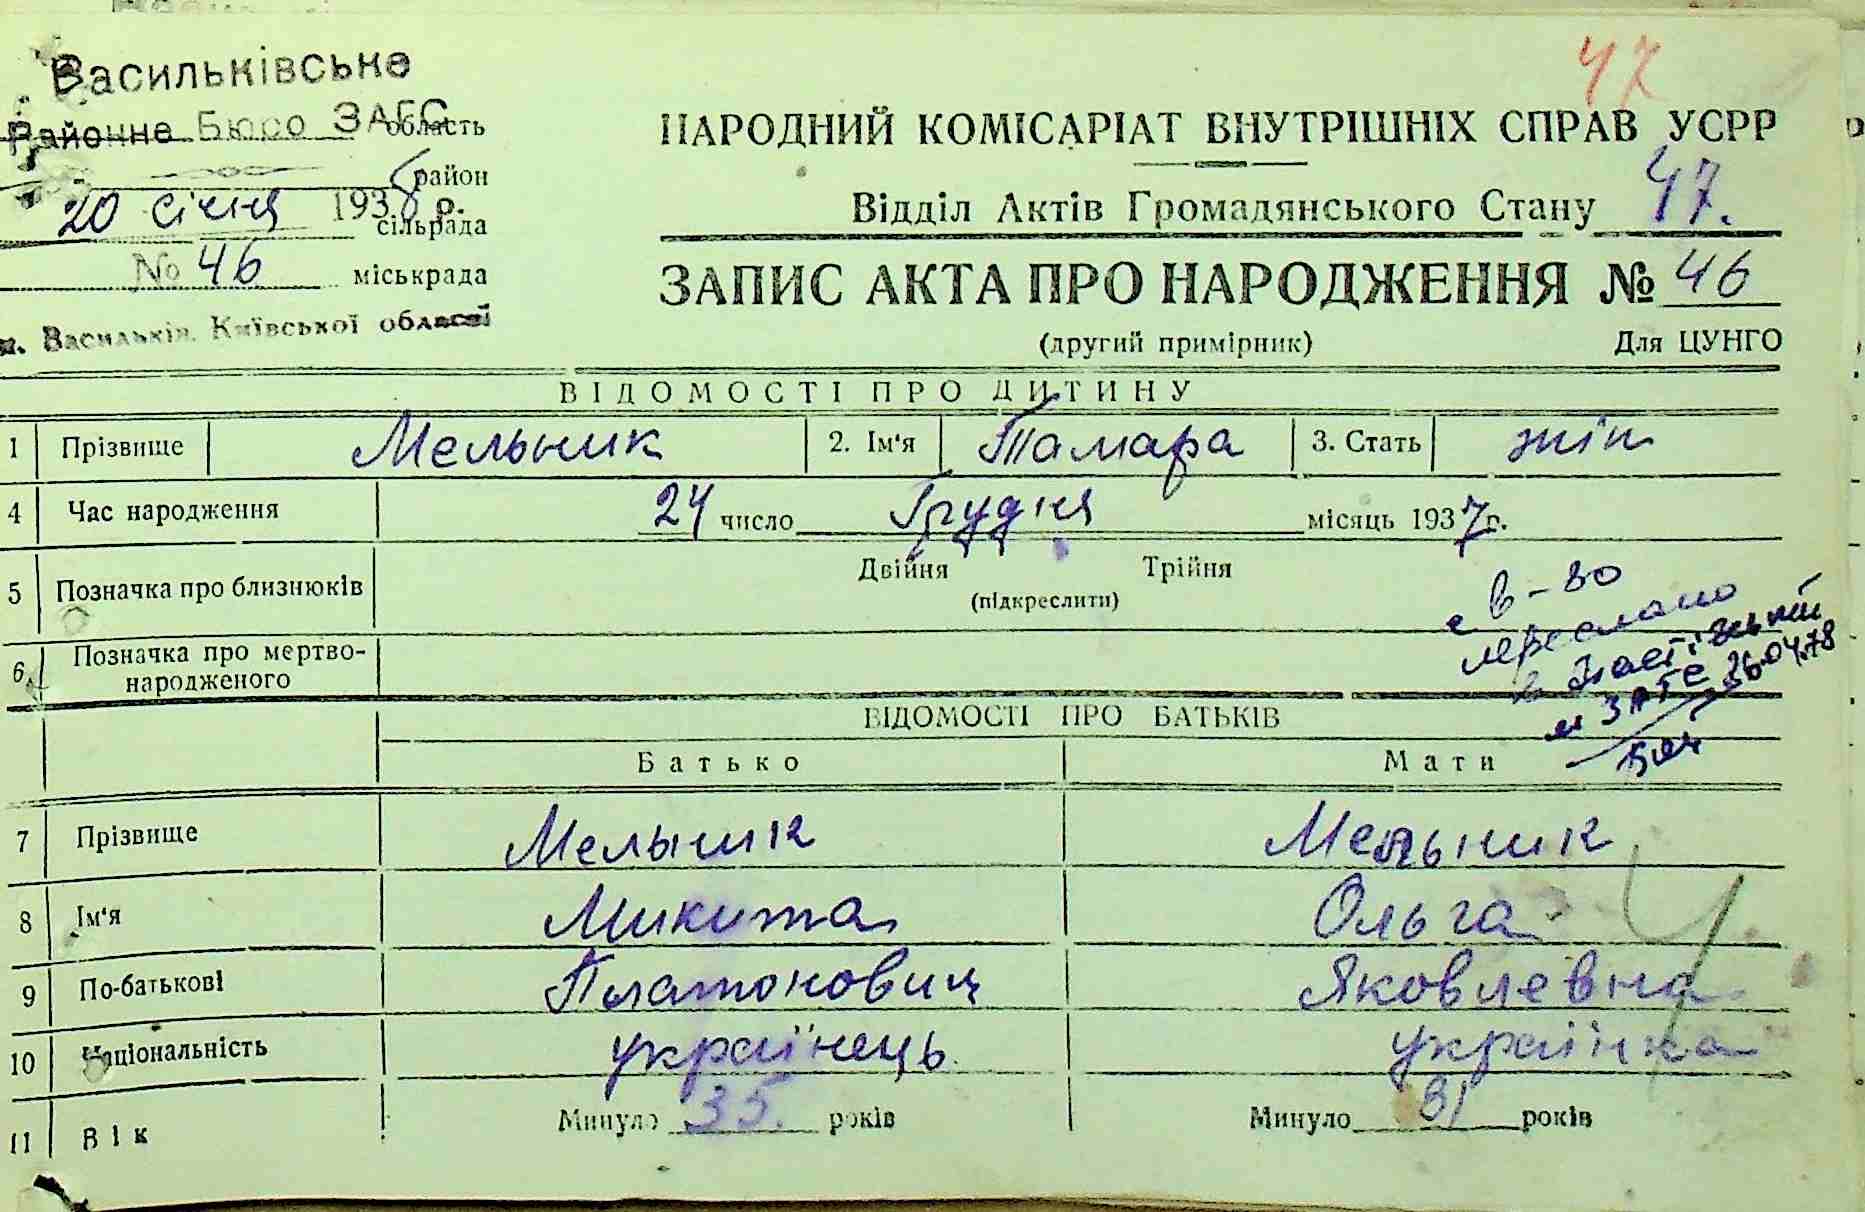 47
Васильківське
Районне Бюро ЗАГС
область
район
20 січня 1938 р.
сільрада
№ 46 міськрада
м. Васильків, Київської області
НАРОДНИЙ КОМІСАРІАТ ВНУТРІШНІХ СПРАВ УСРР
Відділ Актів Громадянського Стану 47.
ЗАПИС АКТА ПРО НАРОДЖЕННЯ № 46
(другий примірник) Для ЦУНГО
ВІДОМОСТІ ПРО ДИТИНУ
1 Прізвище Мельник 2. Ім'я Тамара 3. Стать жін
4 Час народження 24 число Грудня місяць 1937 р.
5 Позначка про близнюків Двійня Трійня
(підкреслити)
6 Позначка про мертво-
народженого
в-во
переслано
ЗАГС 26.04.78
ВІДОМОСТІ ПРО БАТЬКІВ
Батько Мати
7 Прізвище Мельник Мельник
8 Ім'я Микита Ольга
9 По-батькові Платонович Яковлевна
10 Національність українець українка
11 Вік Минуло 35. років Минуло 31 років